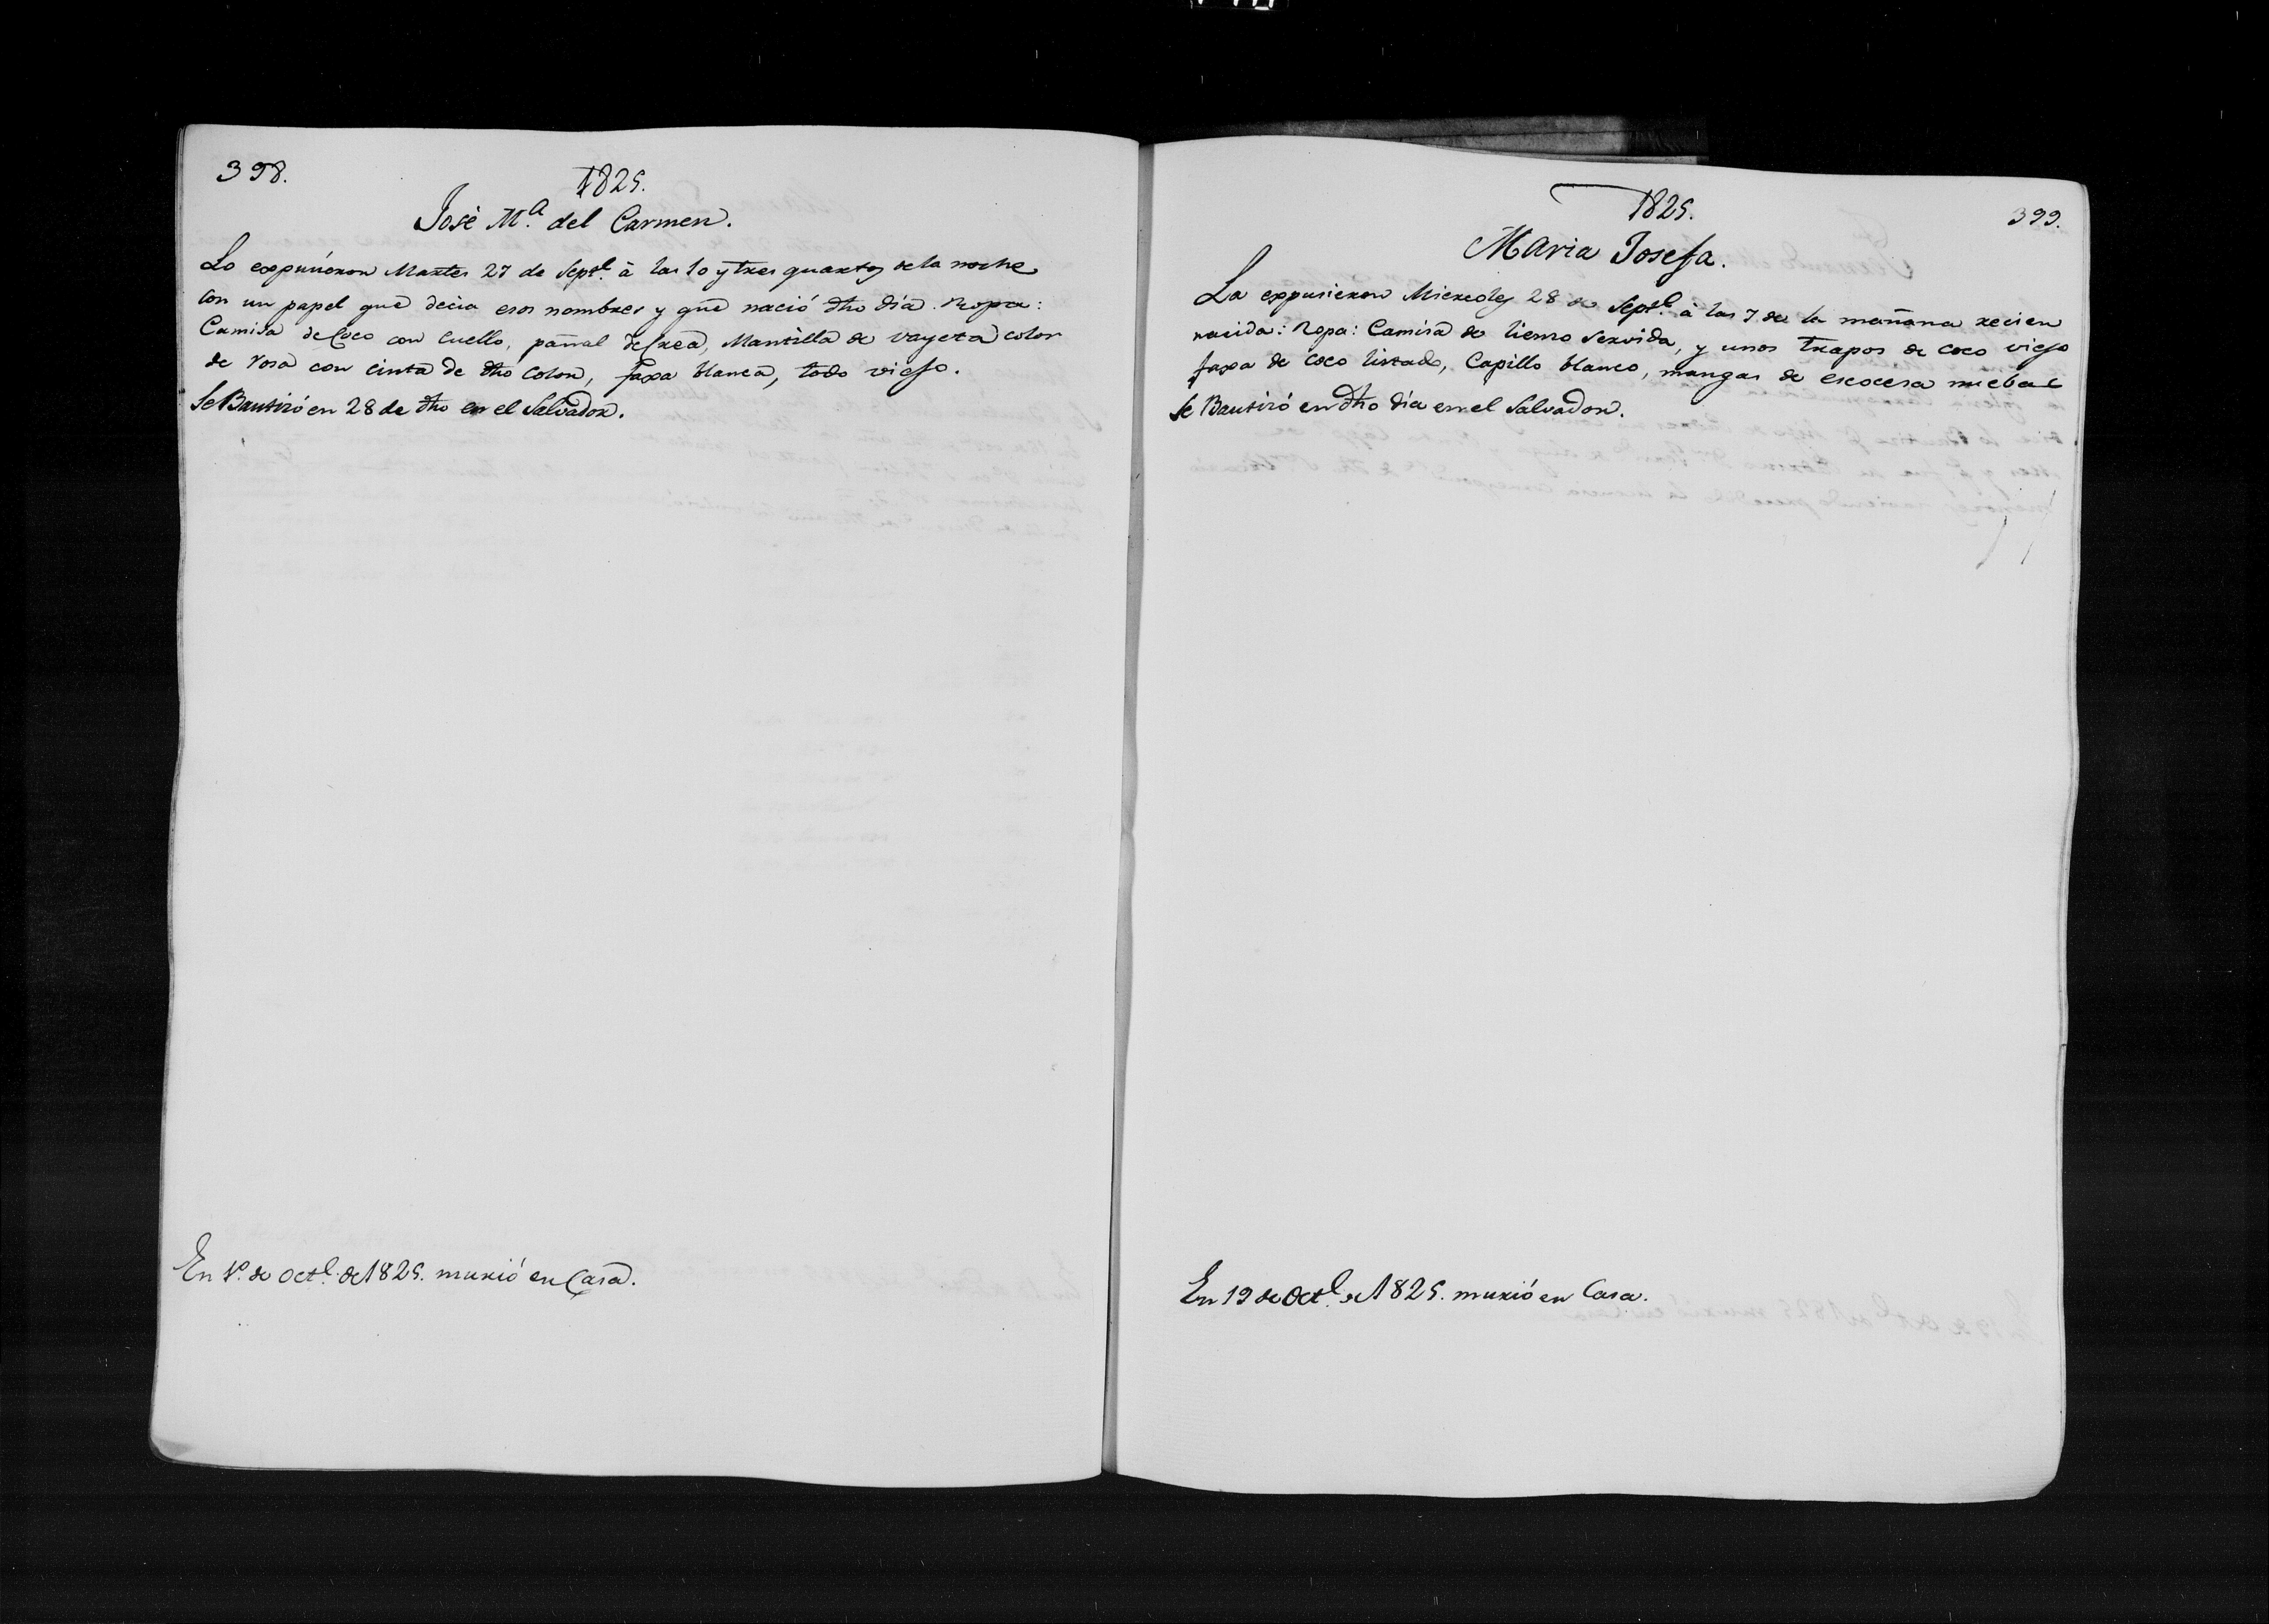 398.
1825.
José M.ª del Carmen.
Lo expusieron Martes 27 de Septe. à las 10 y tres quartos de la noche
con un papel que decia esos nombres y que nació dho dia. Ropa:
Camisa de Coco con cuello, pañal de crea, Mantilla de vayeta color
de rosa con cinta de dho color, faxa blanca, todo viejo.
Se Bautizó en 28 de dho en el Salvador.
En 1º. de Octe. de 1825. murió en Casa.
1825.
399.
Maria Josefa.
La expusieron Miercoles 28 de Septe. à las 7 de la mañana recien
nacida: Ropa: Camisa de lienzo servida, y unos trapos de coco viejo
faxa de coco listado, Capillo blanco, mangas de escocesa nuebas
Se Bautizó en dho dia en el Salvador.
En 19 de Octe. de 1825. murió en Casa.